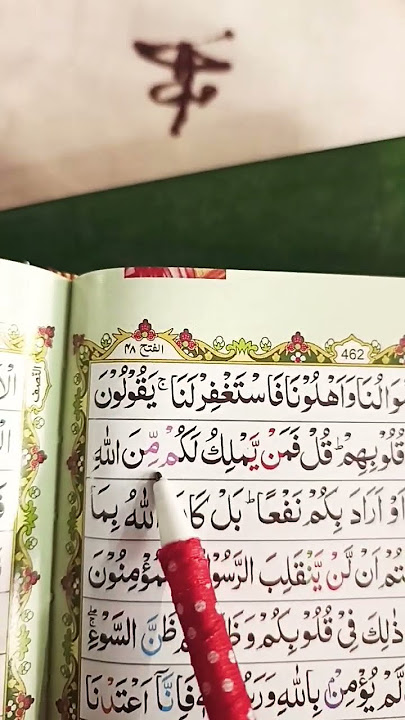 462
الفتح ۴۸
النصف
وَاَهْلُوْنَا فَاسْتَغْفِرْ لَنَا ۚ يَقُوْلُوْنَ
قُلُوْبِهِمْ ؕ قُلْ فَمَنْ يَّمْلِكُ لَكُمْ مِّنَ اللّٰهِ
اَوْ اَرَادَ بِكُمْ نَفْعًا ؕ بَلْ اللّٰهُ بِمَا
اَنْ لَّنْ يَّنْقَلِبَ
ذٰلِكَ فِيْ قُلُوْبِكُمْ ظَنَّ السَّوْءِ
لَّمْ يُؤْمِنْۢ بِاللّٰهِ فَاِنَّاۤ اَعْتَدْنَا